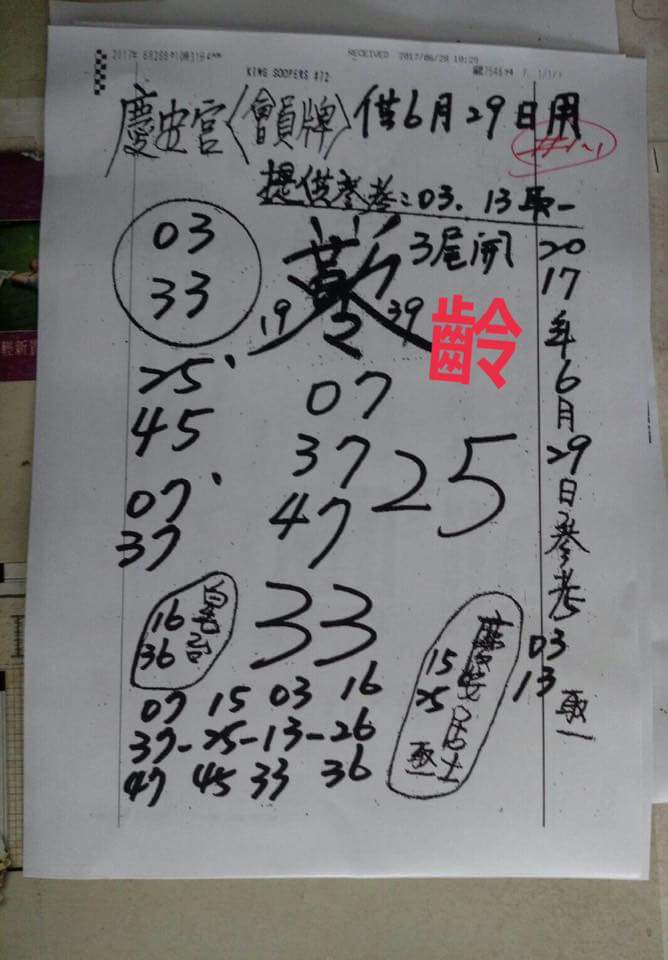 RECEIVED 2017/06/28 10:29
KING SOOPERS #72
慶安宮〈會員牌〉供6月29日用
提供參考:03、13取一
03
33
3尾開
19
39
齡
25、
45
07、
37
07
37
47
25
33
16
36
07 15 03 16
37-25-13-26
47 45 33 36
慶安居士
15
25
取一
2017年6月29日參考
03
13
取一